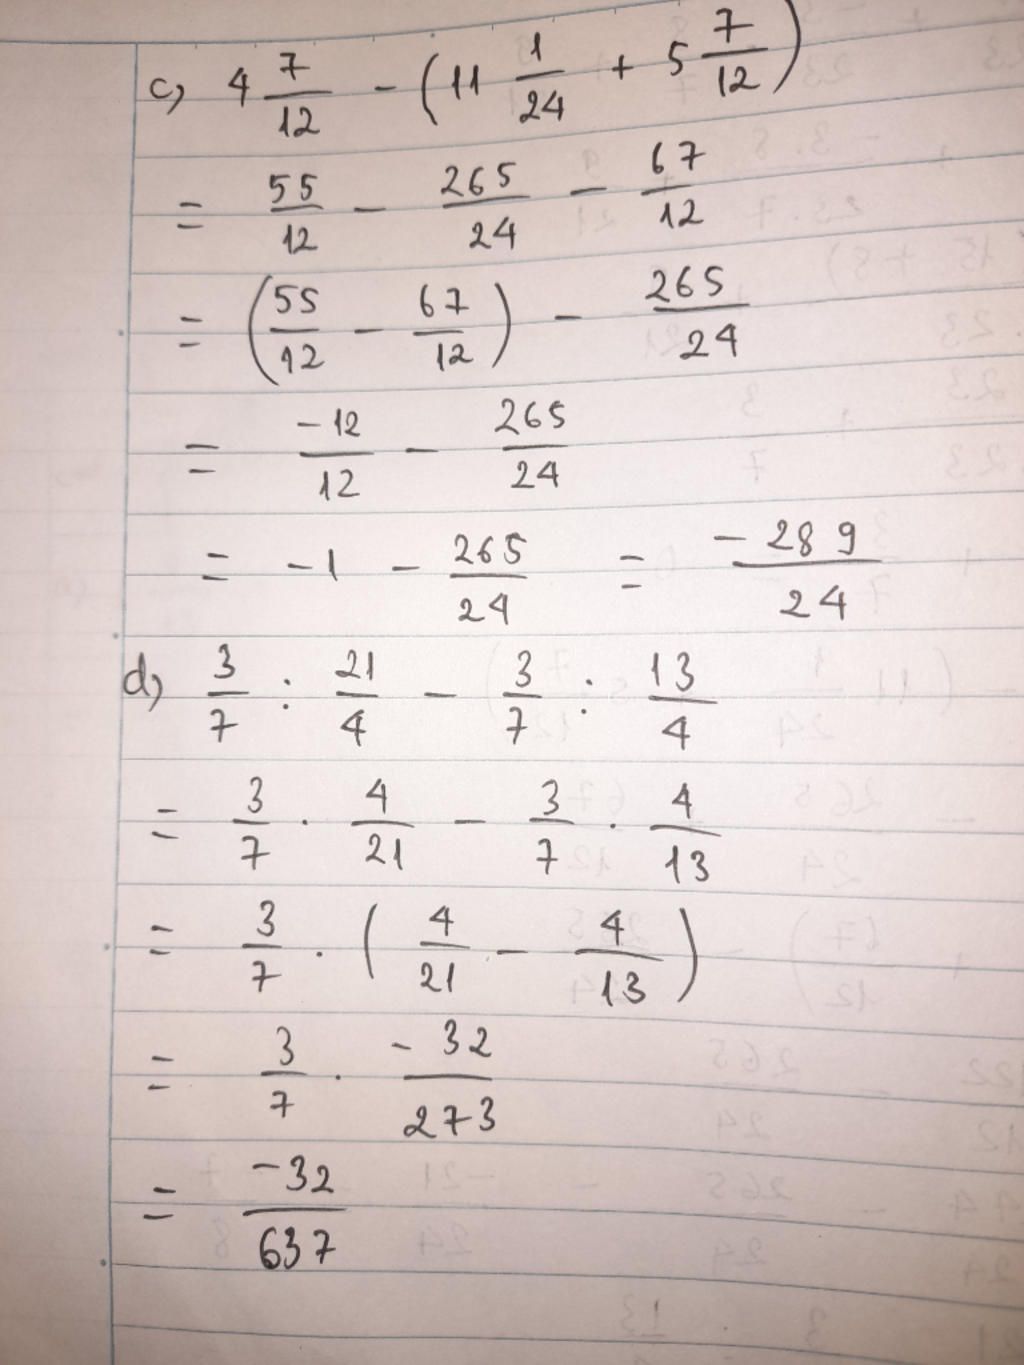 c) 4 7/12 - (11 1/24 + 5 7/12)
= 55/12 - 265/24 - 67/12
= (55/12 - 67/12) - 265/24
= -12/12 - 265/24
= -1 - 265/24 = -289/24
d) 3/7 : 21/4 - 3/7 : 13/4
= 3/7 . 4/21 - 3/7 . 4/13
= 3/7 . (4/21 - 4/13)
= 3/7 . -32/273
= -32/637